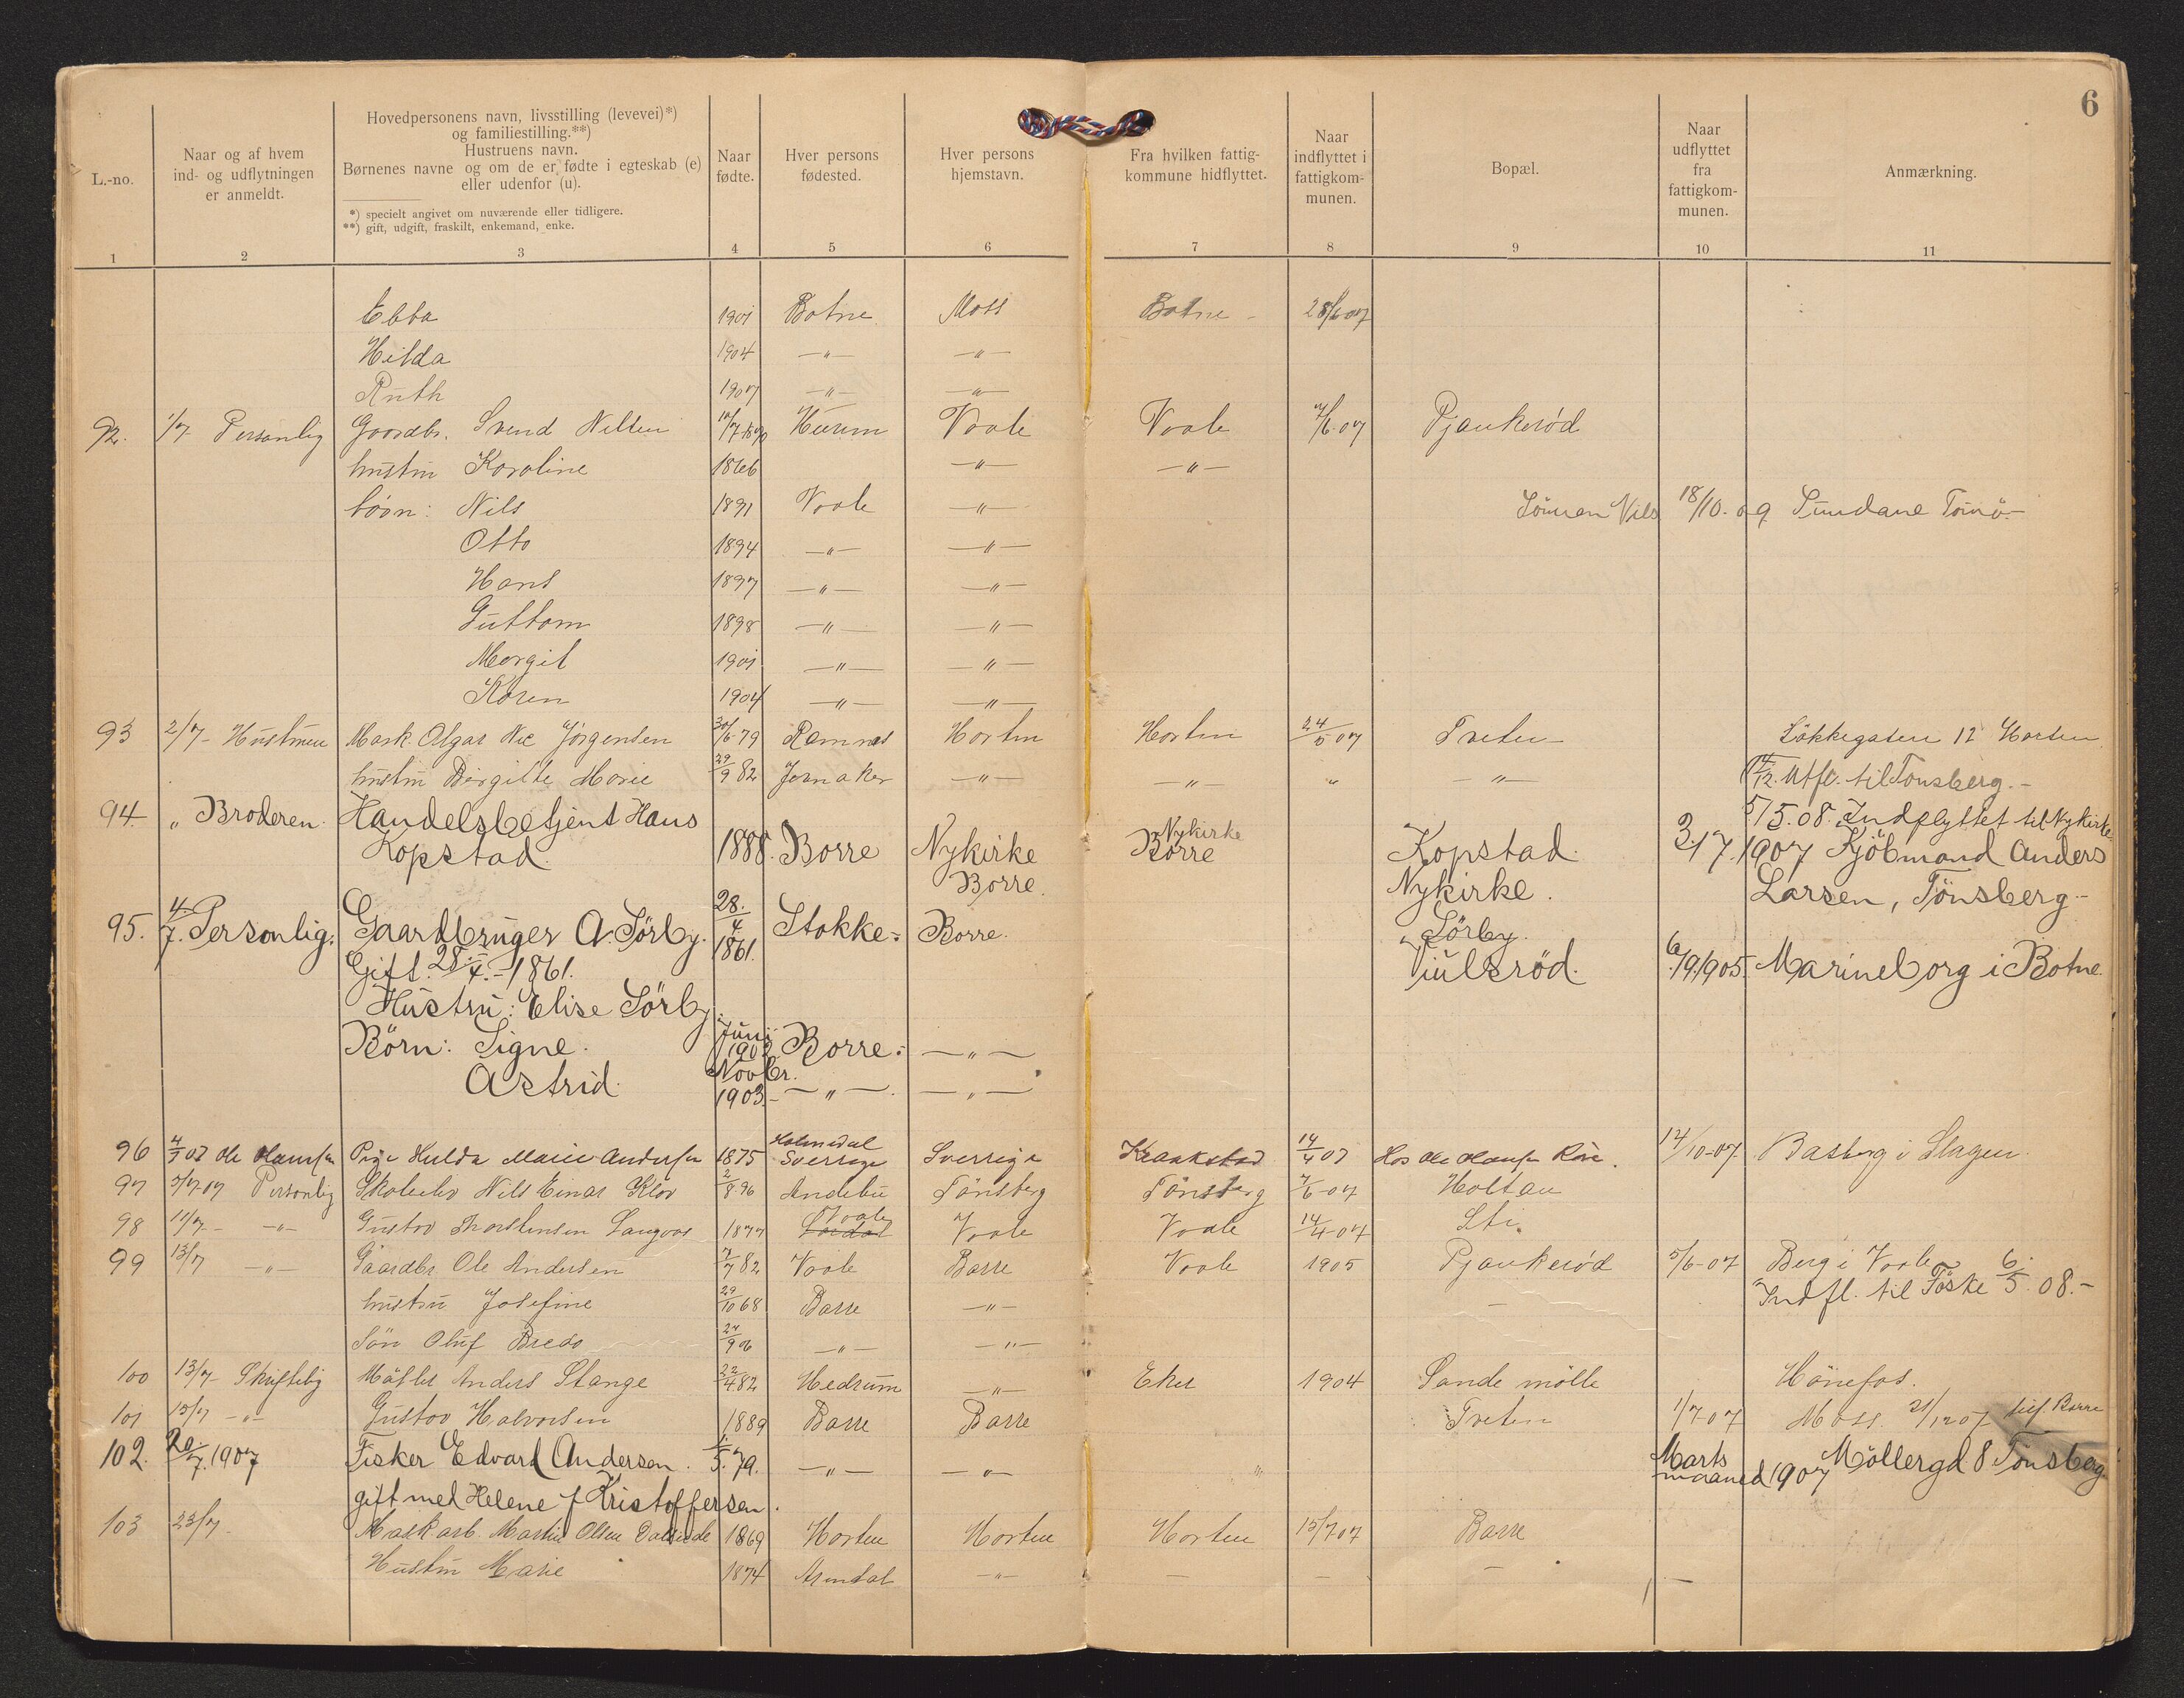 6
L.-no.
Naar og af hvem
ind- og udflytningen
er anmeldt.
Hovedpersonens navn, livsstilling (levevei)*)
og familiestilling.**)
Hustruens navn.
Børnenes navne og om de er fødte i egteskab (e)
eller udenfor (u).
*) specielt angivet om nuværende eller tidligere.
**) gift, udgift, fraskilt, enkemand, enke.
Naar
fødte.
Hver persons
fødested.
Hver persons
hjemstavn.
Fra hvilken fattig-
kommune hidflyttet.
Naar
indflyttet i
fattigkom-
munen.
Bopæl.
Naar
udflyttet
fra
fattigkom-
munen.
Anmærkning.
1 2 3 4 5 6 7 8 9 10 11
Ebba 1901 Botne Moss Botne - 28/6 07
Hilda 1904 -"- -"-
Ruth 1907 -"- -"-
92. 1/7 Personlig Gaardbr. Svend Nilsen Hurum Vaale Vaale 07 Pjaukerød
hustru Karoline 1866 -"- -"-
børn: Nils 1891 Vaale -"- Sönnen Nils 18/10. 09 Sundane Tömö-
Otto 1894 -"- -"-
Hans 1897 -"- -"-
Guttorm 1898 -"- -"-
Margit 1901 -"- -"-
Karen 1904 -"- -"-
93 2/7- Hustruen Mask. Olgar Jörgensen 30/6-79 Ramnes Horten Horten 24/5 07 Tveten Løkkegaten 12 Horten
hustru Birgitte Marie 29/9 82 Jevnaker -"- -"- " -"- Utfl. til Tønsberg.-
94. " Broderen. Handelsbetjent Hans 5/5.08. Indflyttet til Nykirke
Kopstad. 1888. Borre Nykirke Borre. Nykirke Borre Kopstad. Nykirke. 3/7. 1907 Kjöbmand Anders
Larsen, Tönsberg-
95. 4/7. Personlig. Gaardbruger A. Sörby. 28./4 1861. Stokke: Borre. Sörby.
Gift. 28./4.-1861. 6/9.1905. Marineborg i Botne.
Hustru: Elise Sörby.
Börn: Signe. Juni Borre: -"-
Astrid. Novbr. 1903.- -"- -"-
96 4/7 07 Ole Olausen Pige Hulda Marie Andersen 1875 Holmedal Sverrige Sverrige Kraakstad 14/4 07 Hos Ole Olausen 14/10-07 Basberg i Slagen
97 5/7-07 Personlig Skoleelev Nils Einar Klov 2/8 96 Andebu Tønsberg Tønsberg 7/6-07 Holtan
98 11/7- -"- Gustav Thorstensen Langaas 1877 Vaale Vaale Vaale 14/4-07 Sti.
99 13/7 -"- Gaardbr. Ole Andersen 7/7 82 Vaale Barre Vaale 1905 Pjaukerød 5/6-07 Berg i Vaale
hustru Josefine 29/10 68 Barre -"- - Indfl. til Töske 6./5. 08.-
Sön Oluf Bredo 24/9 06 -"- -"-
100 13/7- Skriftelig Møller Anders Stange 22/4 82 Hedrum -"- Eker 1904 Sande mølle Hönefos.
101 15/7 -"- Gustav Halvorsen 1889 Barre Barre Tveten 1/7-07 Moss. 21/12 07 Borre
102. 20./7. 1907 Fisker Edvard Andersen. 5. 79. -"- -"- " Marts maaned 1907 Möllergd 8 Tönsberg
gift med Helene f Kristoffersen.
103 23/7. Maskarb. Martin Olsen 1869 Horten Horten Horten 15/7 07 Barre
Hustru Marie 1874 Arendal -"- - - - -